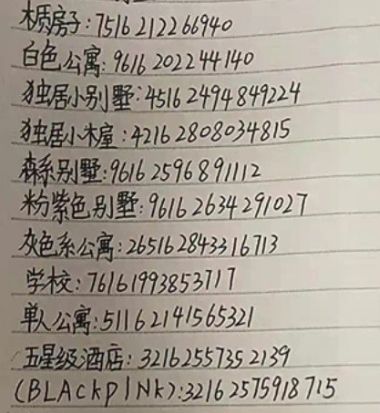 木质房子:7516212266940
白色公寓:9616202244140
独居小别墅:45162494849224
独居小木屋:42162808034815
森系别墅:96162596891112
粉紫色别墅:96162634291027
灰色系公寓:265162843316713
学校:76161993853717
单人公寓:51162141565321
五星级酒店:32162557352139
(BLACKPINK):32162575918715